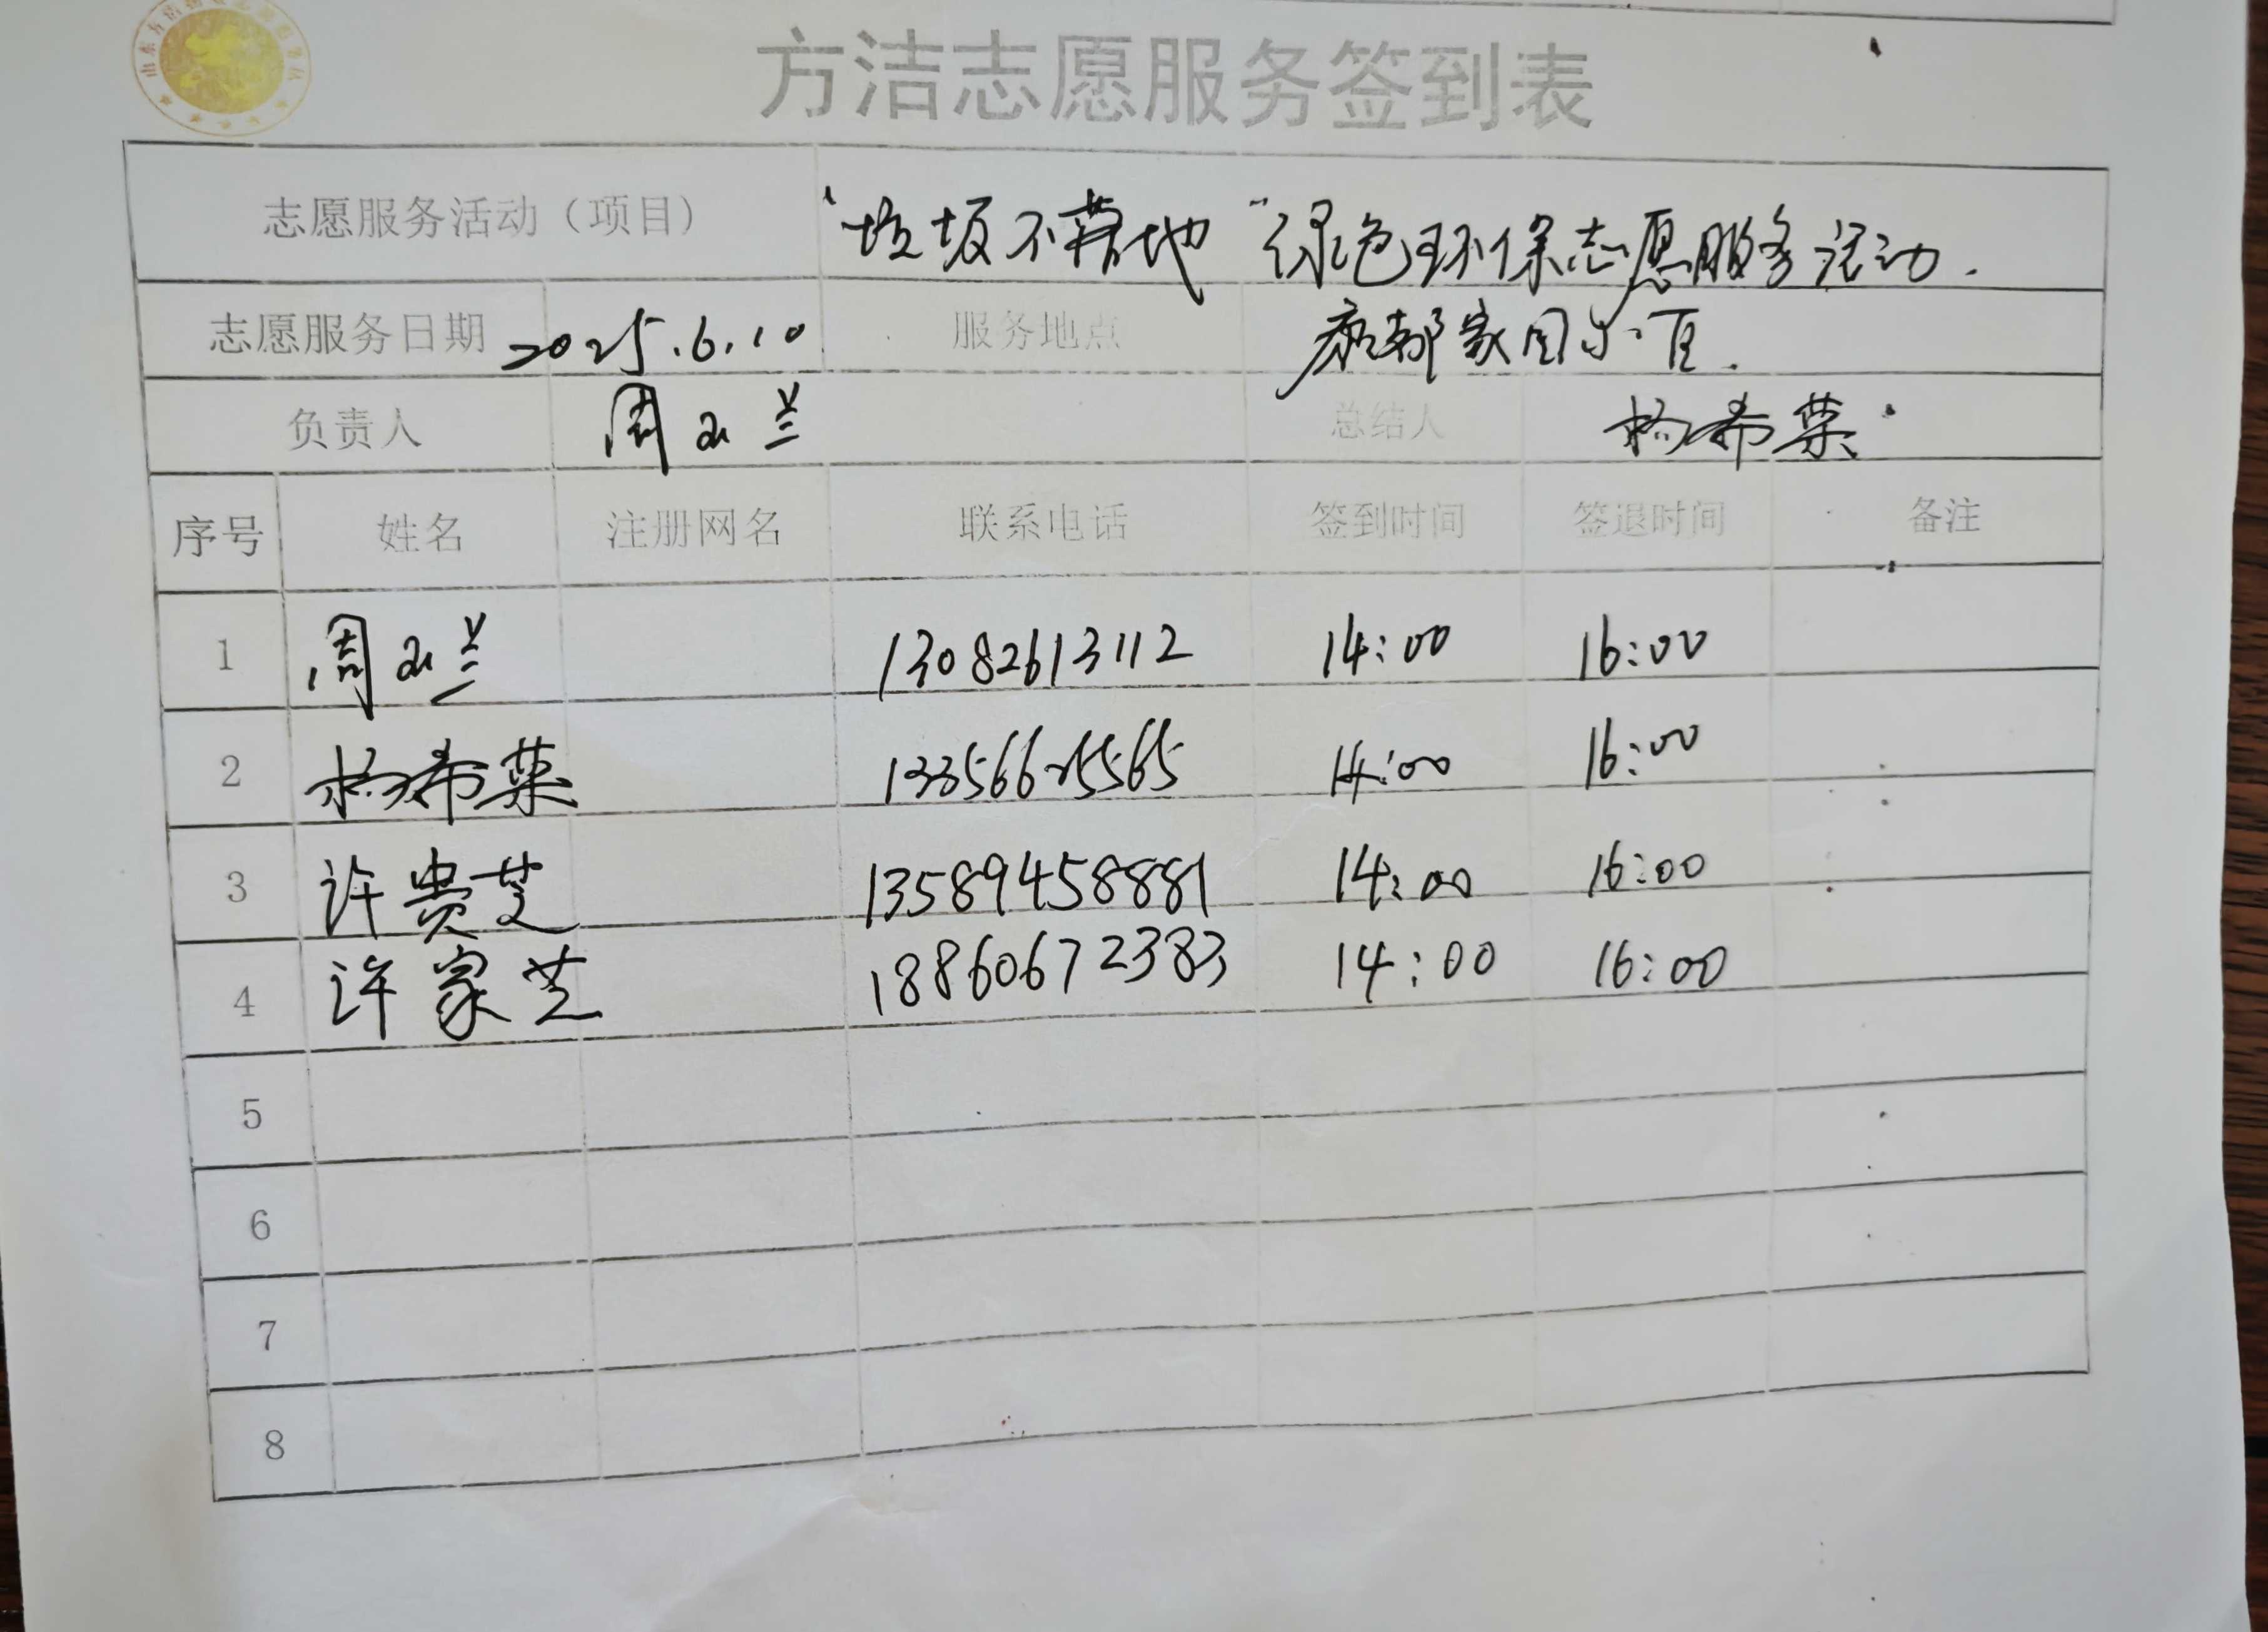 方洁志愿服务签到表
志愿服务活动（项目） “垃圾不落地”绿色环保志愿服务活动.
志愿服务日期 2025.6.10 服务地点 康都家园小区.
负责人 周 兰 总结人 杨希荣
序号 姓名 注册网名 联系电话 签到时间 签退时间 备注
1 周 兰 13082613112 14:00 16:00
2 杨希荣 14:00 16:00
3 许贵芝 13589458881 14:00 16:00
4 许家芝 18860672383 14:00 16:00
5
6
7
8